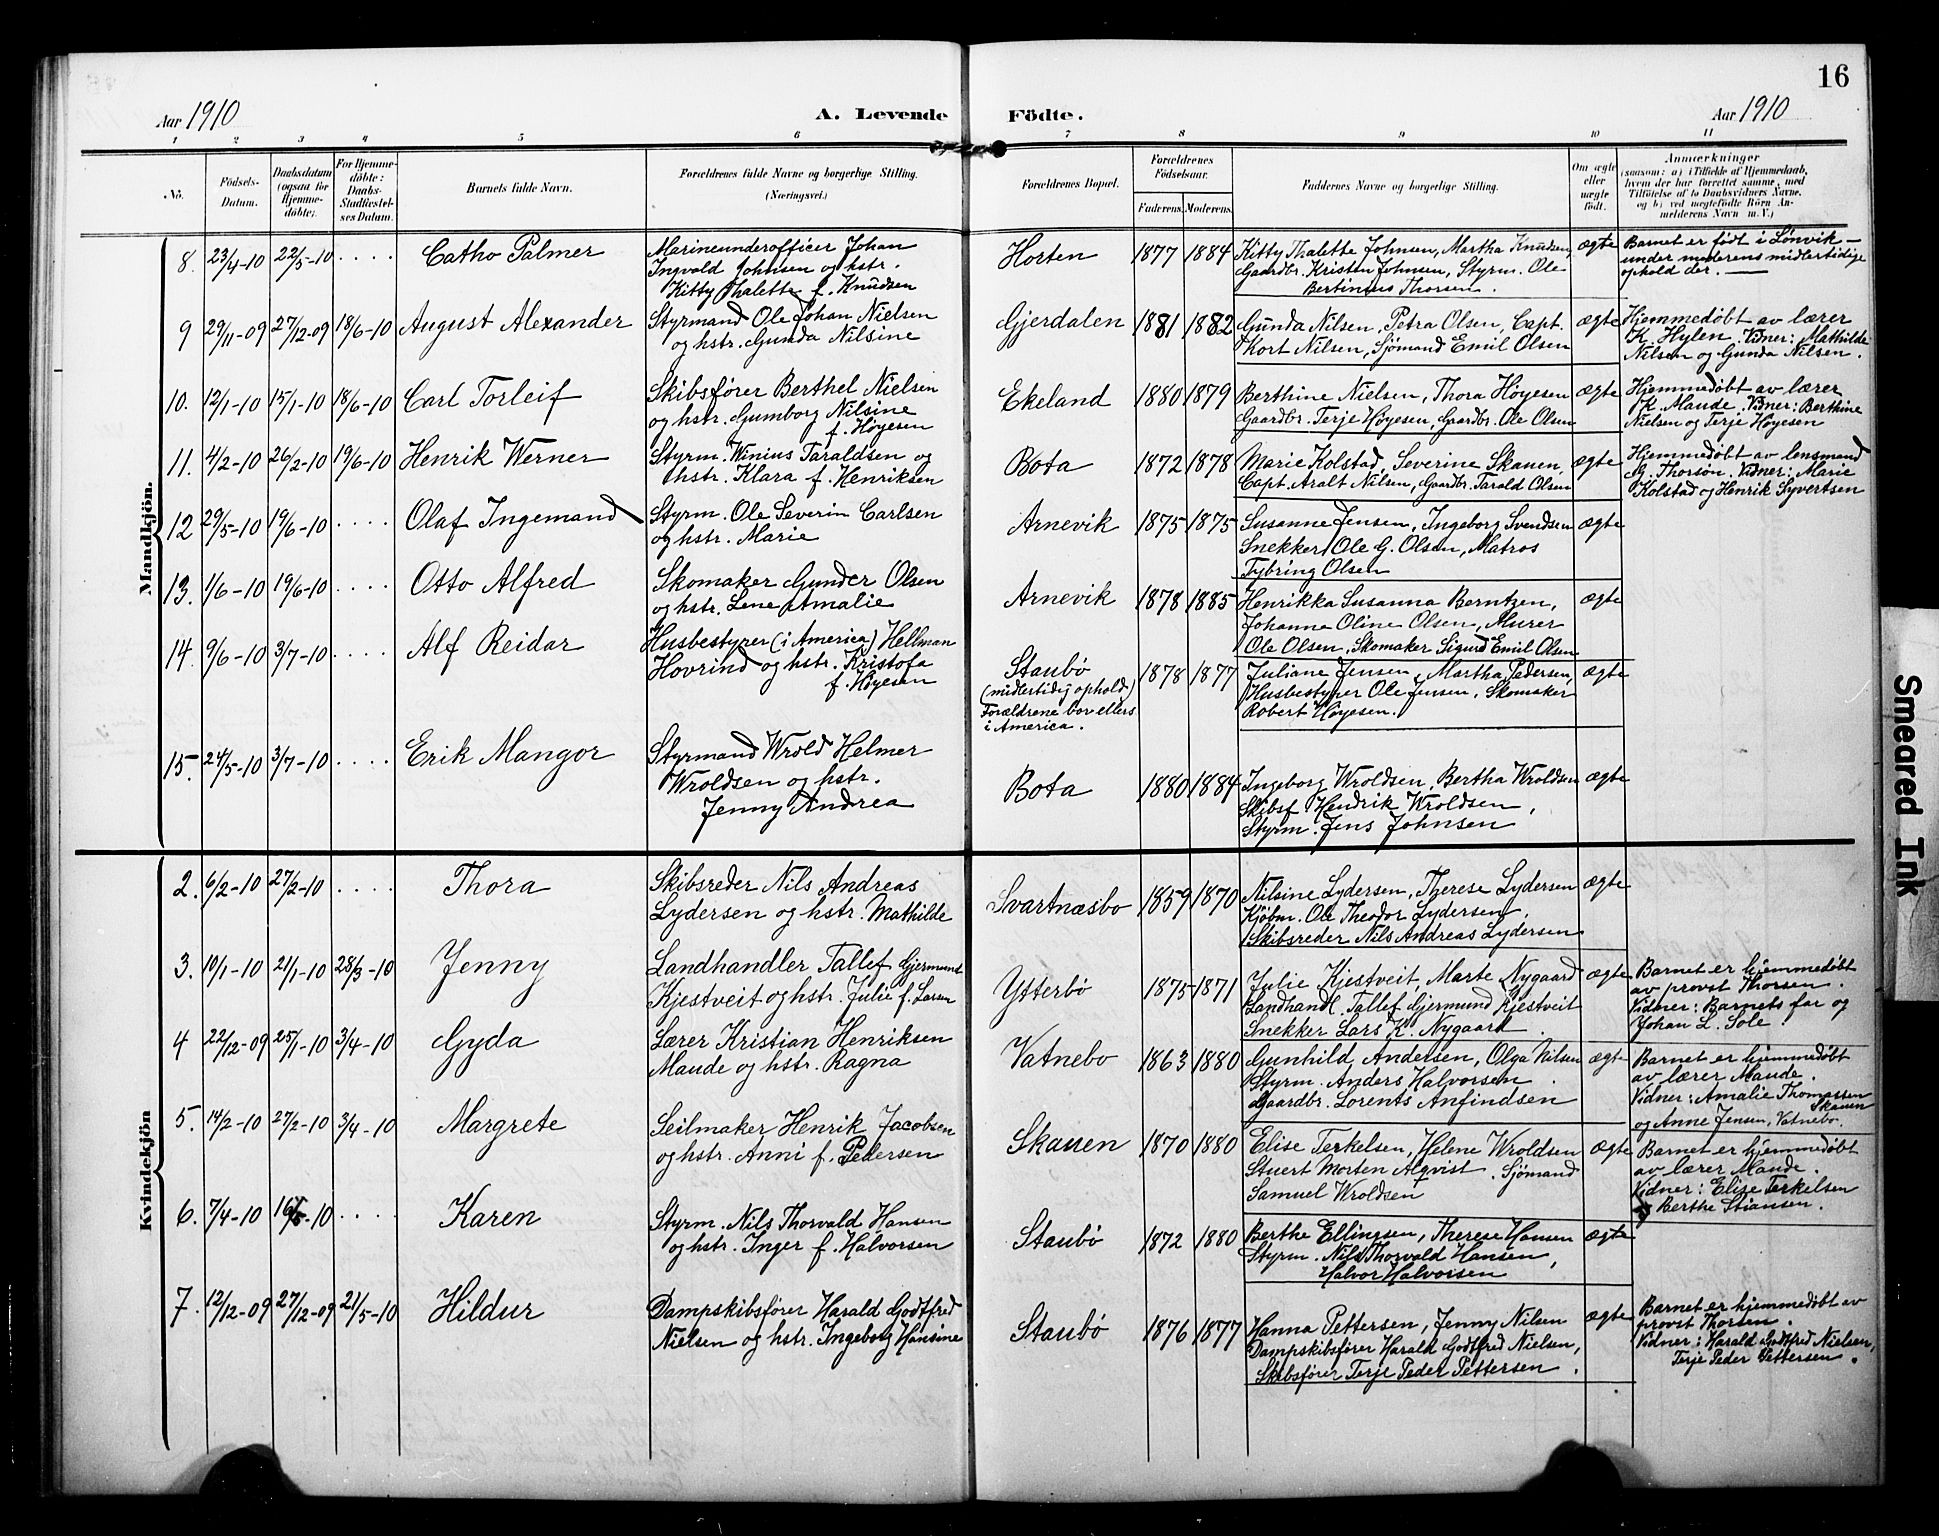 16
Aar 1910
A. Levende Födte.
Aar 1910
1 2 3 4 5 6 7 8 9 10 11
No.
Födsels-
Datum.
Daabsdatum
(ogsaa for
Hjemme-
döbte).
For Hjemme-
döbte:
Daabs-
Stadfæstel-
ses Datum.
Barnets fulde Navn.
Forældrenes fulde Navne og borgerlige Stilling.
(Næringsvei.)
Forældrenes Bopæl.
Forældrenes
Födselsaar.
Faderens. Moderens.
Faddernes Navne og borgerlige Stilling.
Om ægte
eller
uægte
født.
Anmærkninger
(saasom: a) i Tilfælde af Hjemmedaab,
hvem der har forrettet samme, med
Tilföielse af to Daabsvidners Navne,
og b) ved uægtefödte Börn An-
melderens Navn m. V.)
Mandkjön.
8. 23/4-10 22/5-10 . . . . Catho Palmer
Marineunderofficer Johan
Ingvald Johnsen og hstr.
Kitty Thalette f. Knudsen
Horten 1877 1884
Kitty Thalette Johnsen, Martha Knudsen,
Gaardbr. Kristen Johnsen, Styrm. Ole
Bertinius Thorsen.
ægte
Barnet er født i Lønvik –
under moderens midlertidige
ophold der. —
9 29/11-09 27/12-09 18/6-10 August Alexander
Styrmand Ole Johan Nielsen
og hstr. Gunda Nilsine
Gjerdalen 1881 1882
Gunda Nilsen, Petra Olsen, Capt.
Kort Nilsen, Sjömand Emil Olsen
ægte
Hjemmedøbt av lærer
K. Hylen. Vidner: Mathilde
Nilsen og Gunda Nilsen.
10. 12/1-10 15/1-10 18/6-10 Carl Torleif
Skibsfører Berthel Nielsen
og hstr. Gumborg Nilsine
f. Høyesen
Ekeland 1880 1879
Berthine Nielsen, Thora Höyesen
Gaardbr. Terje Höyesen, Gaardbr. Ole Olsen
ægte
Hjemmedøbt av lærer
K. Maude. Vidner: Berthine
Nielsen og Terje Høyesen
11. 4/2-10 26/2-10 19/6-10 Henrik Werner
Styrm. Winius Taraldsen og
hstr. Klara f. Henriksen
Bota 1872 1878
Marie Kolstad, Severine Skauen,
Capt. Aralt Nilsen, Gaardbr. Tarald Olsen
ægte
Hjemmedøbt av lensmand
G. Thorsøn. Vidner: Marie
Kolstad og Henrik Syvertsen
12 29/5-10 19/6-10 . . . . Olaf Ingemand
Styrm. Ole Severin Carlsen
og hstr. Marie
Arnevik 1875 1875
Susanne Jensen, Ingeborg Svendsen
Snekker Ole G. Olsen, Matros
Tybring Olsen
ægte
13. 1/6-10 19/6-10 . . . . Otto Alfred
Skomaker Gunder Olsen
og hstr. Lene Amalie
Arnevik 1878 1885
Henrikka Susanna Berntzen,
Johanne Oline Olsen, Murer
Ole Olsen, Skomaker Sigurd Emil Olsen
ægte
14. 9/6-10 3/7-10 . . . . Alf Reidar
Husbestyrer (i America) Hellman
Hovrind og hstr. Kristofa
f. Høyesen
Staubø
(midlertidig ophold)
Forældrene bor ellers
i America.
1878 1877
Juliane Jensen, Martha Pedersen,
Husbestyrer Ole Jensen, Skomaker
Robert Høyesen.
ægte
15. 24/5-10 3/7-10 . . . . Erik Mangor
Styrmand Wrold Helmer
Wroldsen og hstr.
Jenny Andrea
Bota 1880 1884
Ingeborg Wroldsen, Bertha Wroldsen
Skibsf. Hendrik Wroldsen,
Styrm. Jens Johnsen
ægte
Kvindekjön
2. 6/2-10 27/2-10 . . . . Thora
Skibsreder Nils Andreas
Lydersen og hstr. Mathilde
Svartnæsbo 1859 1870
Nilsine Lydersen, Therese Lydersen
Kjöbm. Ole Theodor Lydersen,
Skibsreder Nils Andreas Lydersen
ægte
3. 10/1-10 21/1-10 28/3-10 Jenny
Landhandler Tallef Gjermund
Kjestveit og hstr. Julie f. Larsen
Ytterbø 1875 1871
Julie Kjestveit, Marte Nygaard
Landhandl. Tallef Gjermund Kjestveit
Snekker Lars K. Nygaard.
ægte
Barnet er hjemmedøbt
av provst Thorsen.
Vidner: Barnets far og
Johan L. Sole.
4 22/12-09 25/1-10 3/4-10 Gyda
Lærer Kristian Henriksen
Maude og hstr. Ragna
Vatnebo 1863 1880
Gunhild Andersen, Olga Nilsen
Styrm. Anders Halvorsen.
Gaardbr. Lorents Anfindsen
ægte
Barnet er hjemmedøbt
av lærer Maude.
Vidner: Amalie Thomassen
Skauen
og Anne Jensen, Vatnebo.
5. 14/2-10 27/2-10 3/4-10 Margrete
Seilmaker Henrik Jacobsen
og hstr. Anni f. Pedersen
Skauen 1870 1880
Elise Terkelsen, Helene Wroldsen
Stuert Morten Alqvist. Sjömand
Samuel Wroldsen
ægte
Barnet er hjemmedøbt
av lærer Maude.
Vidner: Elise Terkelsen
og Berthe Stiansen.
6. 7/4-10 16/5-10 . . . . Karen
Styrm. Nils Thorvald Hansen
og hstr. Inger f. Halvorsen
Staubø 1872 1880
Berthe Ellingsen, Therese Hansen
Styrm. Nils Thorvald Hansen,
Halvor Halvorsen
ægte
7. 12/12-09 27/12-09 21/5-10 Hildur
Dampskibsfører Harald Godtfred
Nielsen og hstr. Ingeborg Hansine
Staubø 1876 1877
Hanna Pettersen, Jenny Nilsen
Dampskibsfører Harald Godtfred Nielsen,
Skibsfører Terje Peder Pettersen.
ægte
Barnet er hjemmedøbt av
provst Thorsen.
Vidner: Harald Godtfred Nielsen,
Terje Peder Pettersen.
Smeared Ink